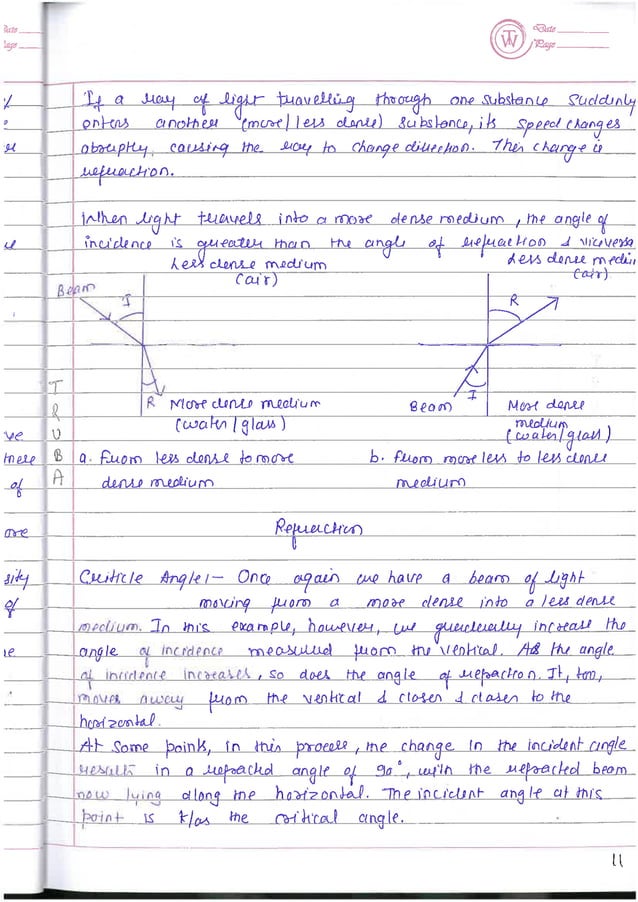 Date
Page
TW
Date
Page
If a ray of light travelling through one substance suddinly
enters another (more/less dense) substance, its speed changes
abruptly, causing the ray to change direction. This change is
refraction.
When light travels into a more dense medium, the angle of
incidence is greater than the angle of refraction & viceversa
Less dense medium
(air)
Less dense medium
(air)
Beam
I
R
R
More dense medium
(water/glass)
Beam
I
More dense
medium
(water/glass)
TRUBA
a. From less dense to more
dense medium
b. From more less to less dense
medium
Refraction
Criticle Angle:- Once again we have a beam of light
moving from a more dense into a less dense
medium. In this example, however, we graduelly increase the
angle of incidence measured from the vertical. As the angle
of incidence increases, so does the angle of refraction. It, too,
moves away from the vertical & closer & closer to the
horizontal.
At some points, in this process, the change in the incident angle
results in a refracted angle of 90°, with the refracted beam
now lying along the horizontal. The incident angle at this
point is k/as the critical angle.
11
ve
there
of
ore
sity
of